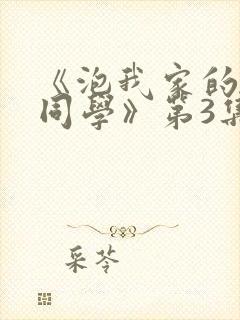 《泡我家的
同學》第3集
采苓